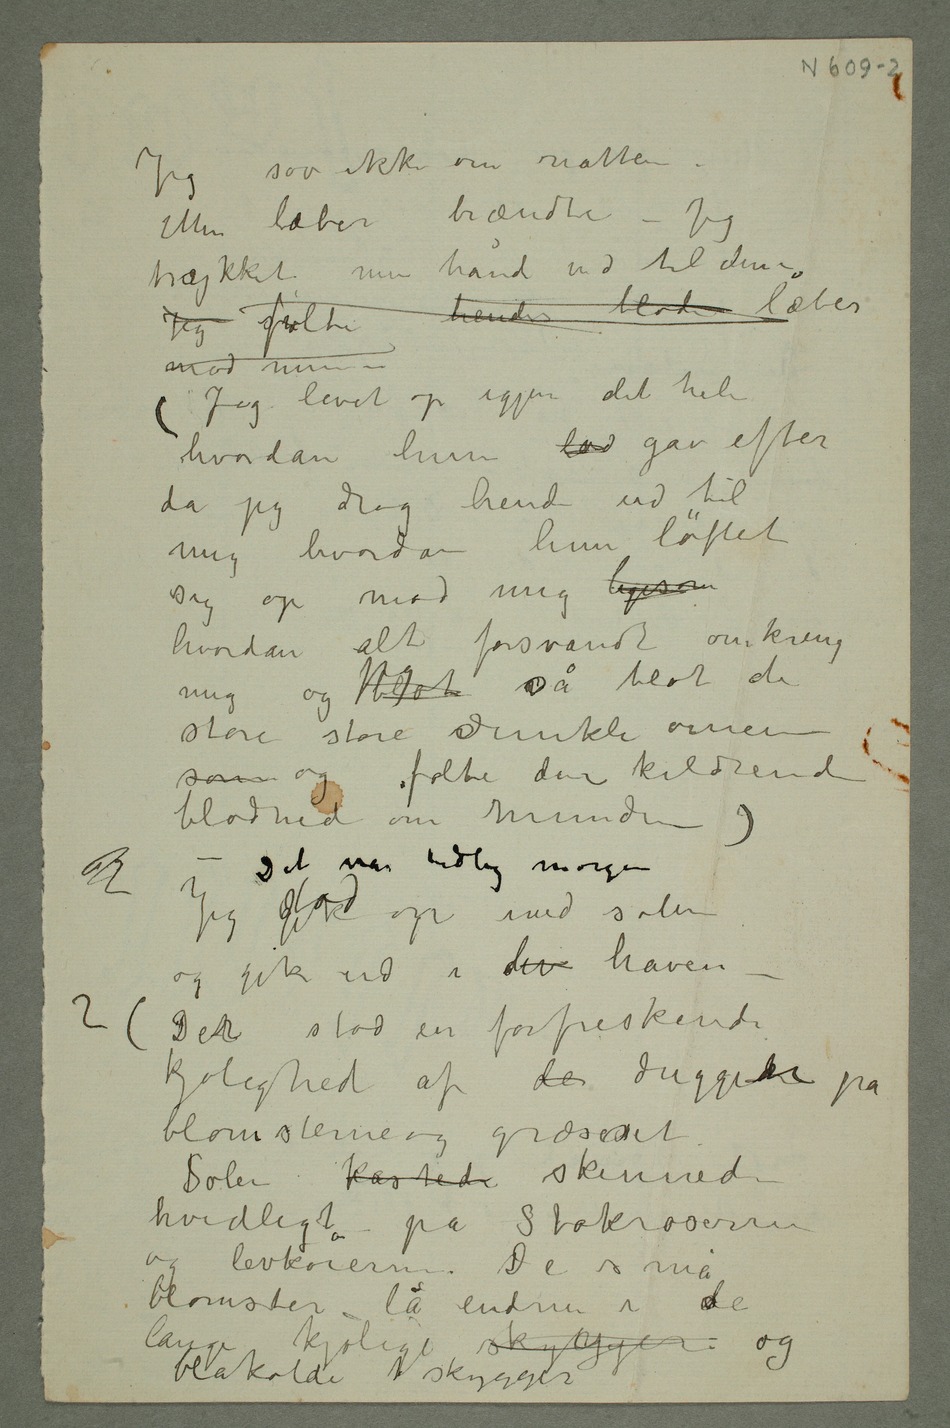 N 609-2
Jeg sov ikke om natten.
Mine læber brændte – Jeg
trykket min hånd ind til dem.
Jeg følte hendes bløde læber
mod mine –
(Jeg levet op igjen det hele
hvordan hun lod gav efter
da jeg drog hende ind til
mig hvordan hun löftet
sig op mod mig ligesom
hvordan alt forsvandt omkring
mig og jeg blot så blot de
store store dunkle öinene
som og følte den kildrende
blødhed om munden)
– Det var tidlig morgen
Jeg stod op med solen
og gik ud i den haven –
2 (Det stod en forfriskende
kjølighed af de duggen på
blomsterne og græsset.
Solen kastede skinnede
hvidligt på Stokroserne
og levkoierne. De små
blomster lå endnu i de
lange kjølige skygger og
blåkolde skygger